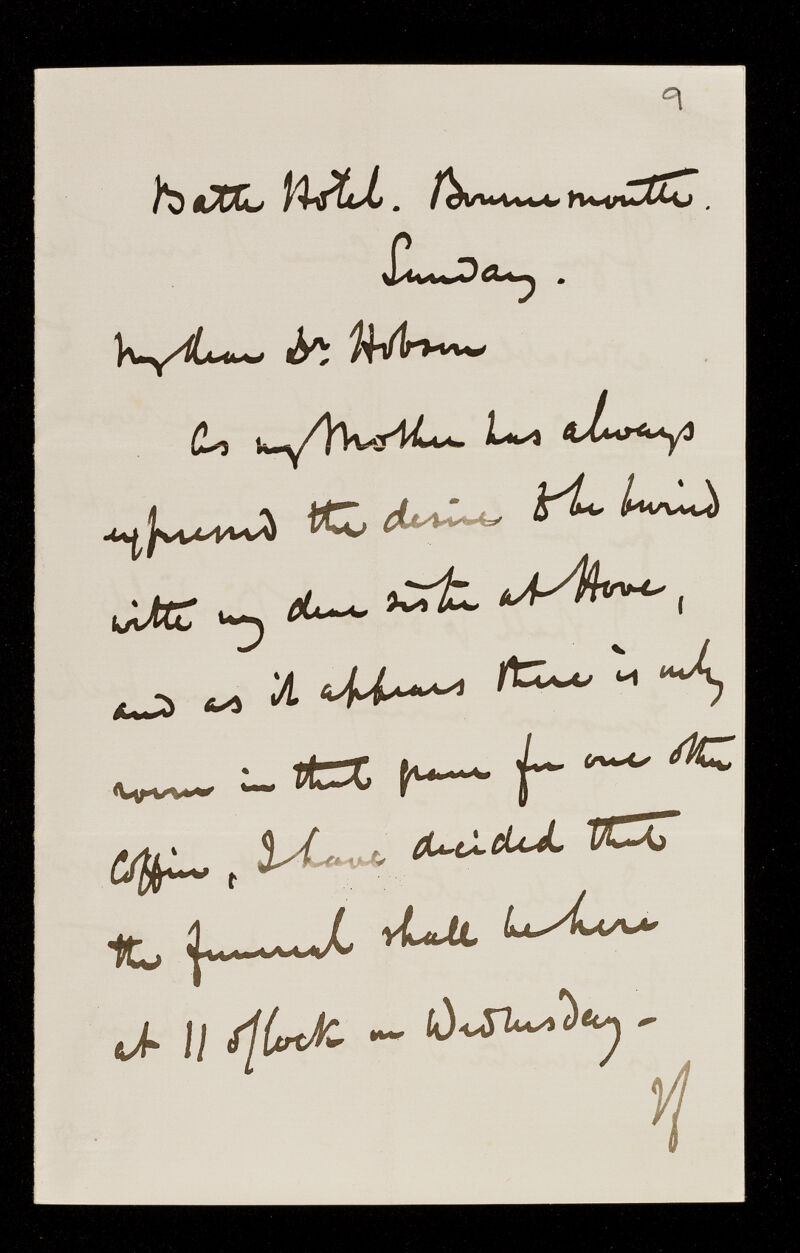 9
Bath Hotel. Bournemouth.
Sunday.
My dear Dr. Hobson
As my Mother has always
expressed the desire to be buried
with my dear sister at Hove,
and as it appears there is only
room in that grave for one other
Coffin, I have decided that
the funeral shall be here
at 11 o'clock on Wednesday -
If